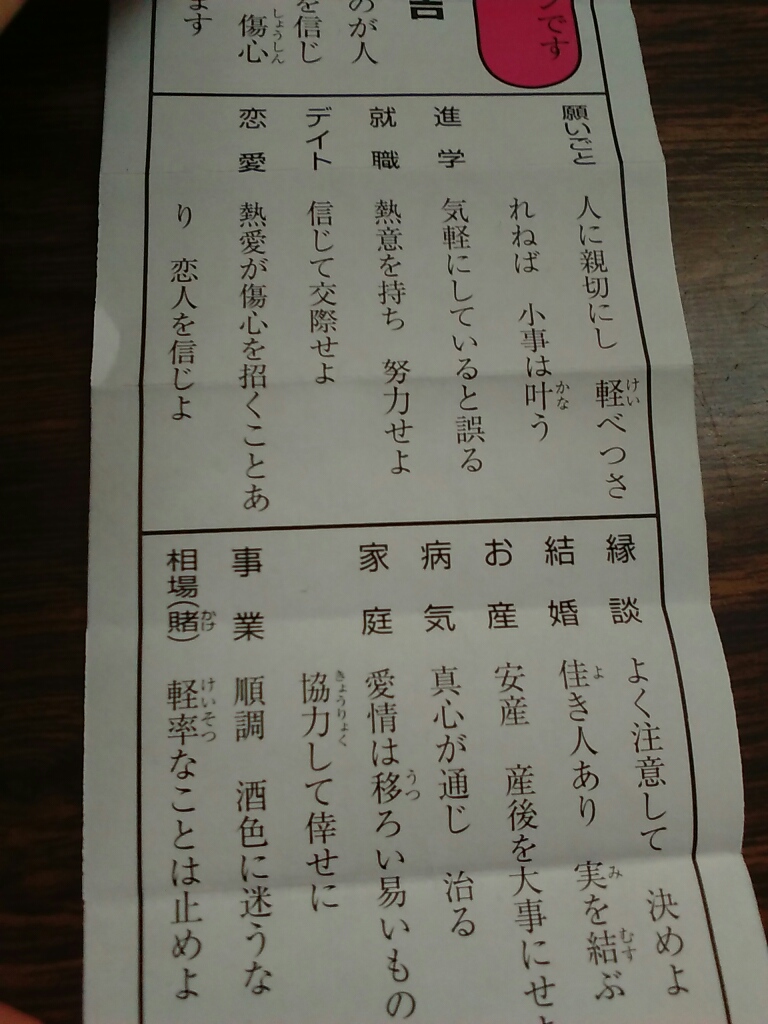 です
吉
のが人
を信じ
傷心
しょうしん
ます
願いごと
人に親切にし 軽べつさ
けい
れねば 小事は叶う
かな
進学
気軽にしていると誤る
就職
熱意を持ち 努力せよ
デイト
信じて交際せよ
恋愛
熱愛が傷心を招くことあ
り 恋人を信じよ
縁談
よく注意して 決めよ
結婚
佳き人あり 実を結ぶ
よ み むす
お産
安産 産後を大事にせよ
病気
真心が通じ 治る
家庭
愛情は移ろい易いもの
うつ
協力して倖せに
きょうりょく
事業
順調 酒色に迷うな
相場(賭)
かけ
軽率なことは止めよ
けいそつ